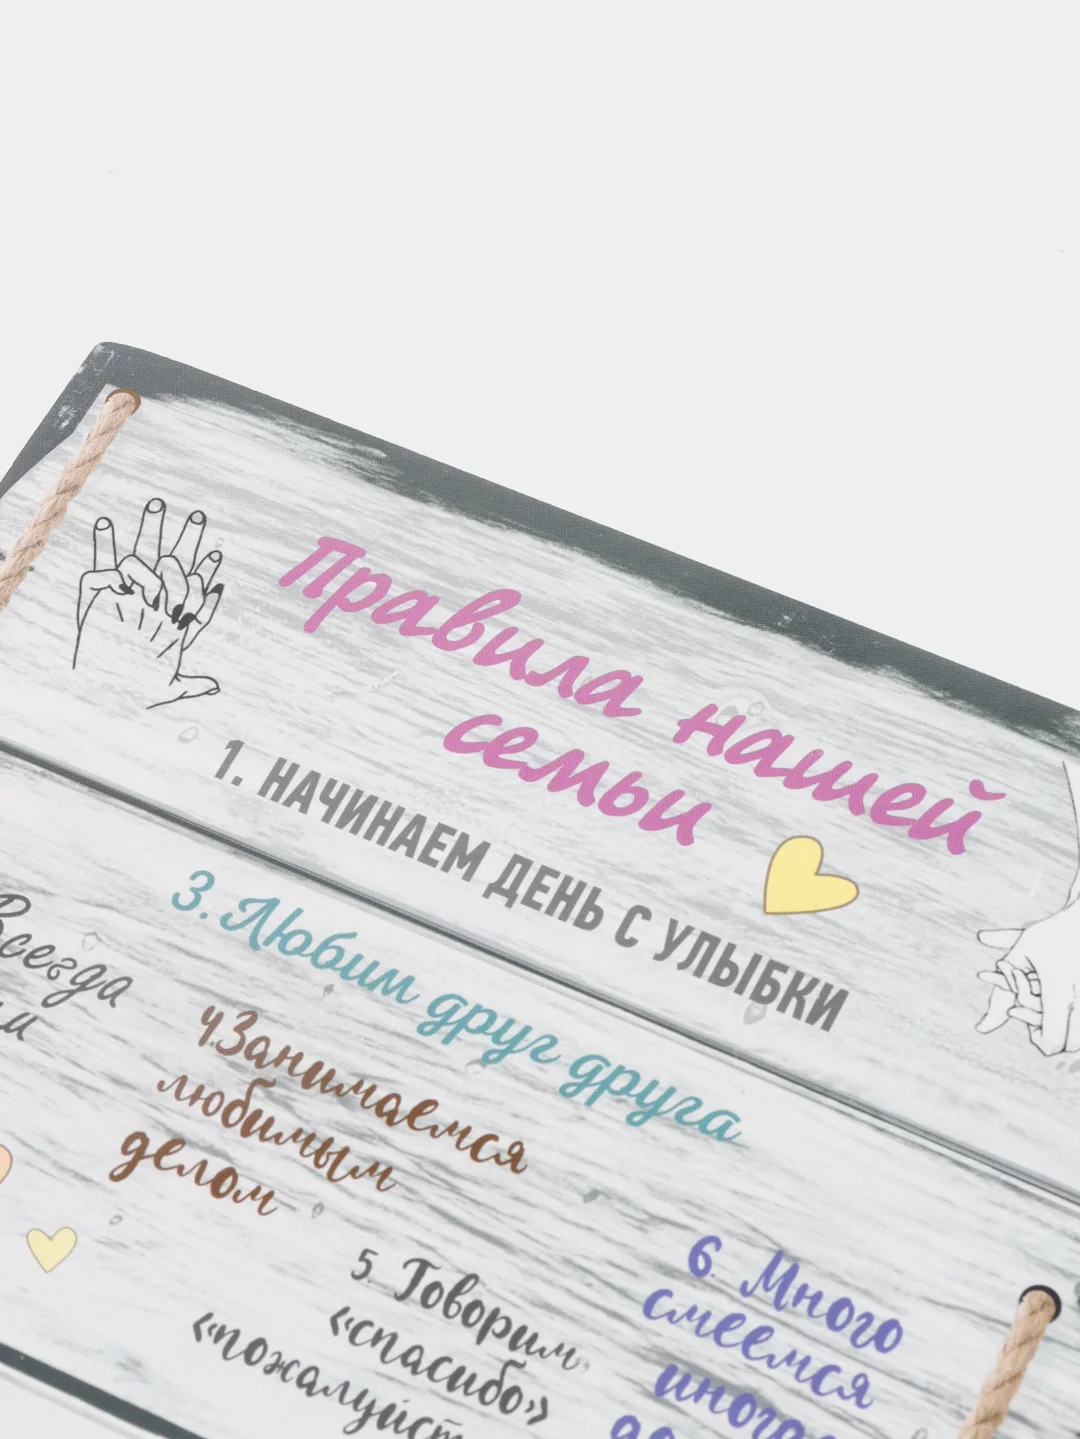 Правила нашей
семьи
1. НАЧИНАЕМ ДЕНЬ С УЛЫБКИ
Всегда
3. Любим друг друга
4.Занимаемся
любимым
делом
5. Говорим
«спасибо»
6. Много
смеемся